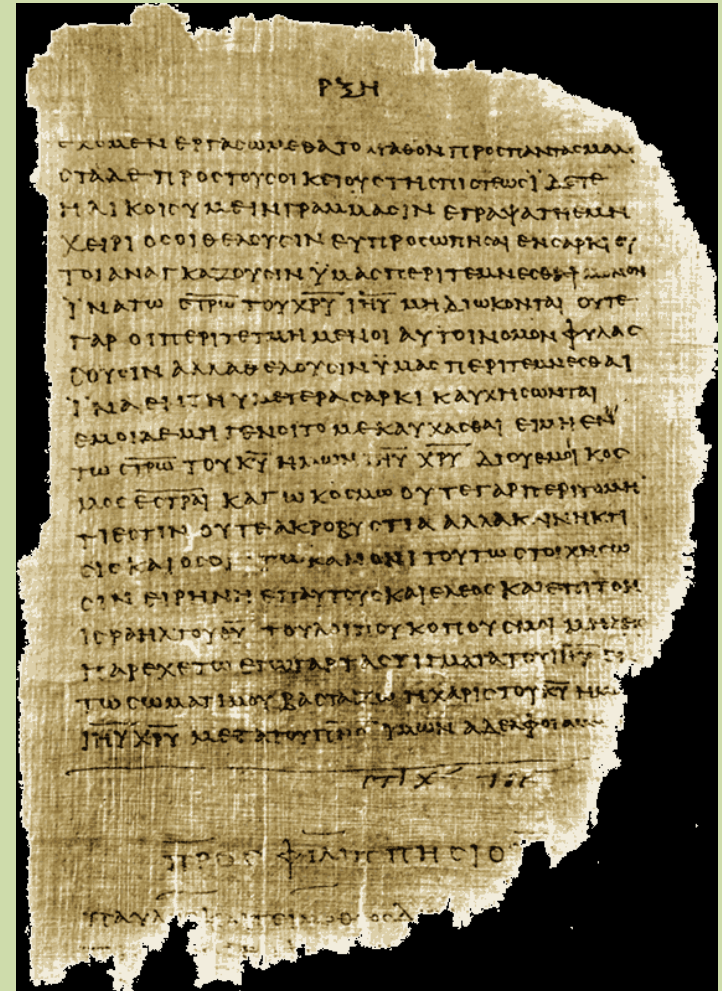 ΡΞΗ
ΕΧΟΜΕΝ ΕΡΓΑϹΩΜΕΘΑ ΤΟ ΑΓΑΘΟΝ ΠΡΟϹ ΠΑΝΤΑϹ ΜΑΛΙ
ϹΤΑ ΔΕ ΠΡΟϹ ΤΟΥϹ ΟΙΚΕΙΟΥϹ ΤΗϹ ΠΙϹΤΕΩϹ ΪΔΕΤΕ
ΗΛΙΚΟΙϹ ΥΜΕΙΝ ΓΡΑΜΜΑϹΙΝ ΕΓΡΑΨΑ ΤΗ ΕΜΗ
ΧΕΙΡΙ ΟϹΟΙ ΘΕΛΟΥϹΙΝ ΕΥΠΡΟϹΩΠΗϹΑΙ ΕΝ ϹΑΡΚΙ ΟΥ
ΤΟΙ ΑΝΑΓΚΑΖΟΥϹΙΝ ΫΜΑϹ ΠΕΡΙΤΕΜΝΕϹΘΑΙ ΜΟΝΟΝ
ΪΝΑ ΤΩ Ϲ̅Τ̅Ρ̅Ω̅ ΤΟΥ Χ̅Ρ̅Υ̅ Ι̅Η̅Υ̅ ΜΗ ΔΙΩΚΟΝΤΑΙ ΟΥΤΕ
ΓΑΡ ΟΙ ΠΕΡΙΤΕΤΜΗΜΕΝΟΙ ΑΥΤΟΙ ΝΟΜΟΝ ΦΥΛΑϹ
ϹΟΥϹΙΝ ΑΛΛΑ ΘΕΛΟΥϹΙΝ ΫΜΑϹ ΠΕΡΙΤΕΜΝΕϹΘΑΙ
ΪΝΑ ΕΝ ΤΗ ΥΜΕΤΕΡΑ ϹΑΡΚΙ ΚΑΥΧΗϹΩΝΤΑΙ
ΕΜΟΙ ΔΕ ΜΗ ΓΕΝΟΙΤΟ ΜΕ ΚΑΥΧΑϹΘΑΙ ΕΙ ΜΗ ΕΝ
ΤΩ Ϲ̅Τ̅Ρ̅Ω̅ ΤΟΥ Κ̅Υ̅ ΗΜΩΝ Ι̅Η̅Υ̅ Χ̅Ρ̅Υ̅ ΔΙ ΟΥ ΕΜΟΙ ΚΟϹ
ΜΟϹ Ε̅Ϲ̅Τ̅Ρ̅Α̅Ι̅ ΚΑΓΩ ΚΟϹΜΩ ΟΥΤΕ ΓΑΡ ΠΕΡΙΤΟΜΗ
ΤΙ ΕϹΤΙΝ ΟΥΤΕ ΑΚΡΟΒΥϹΤΙΑ ΑΛΛΑ ΚΑΙΝΗ ΚΤΙ
ϹΙϹ ΚΑΙ ΟϹΟΙ ΤΩ ΚΑΝΟΝΙ ΤΟΥΤΩ ϹΤΟΙΧΗϹΩ
ϹΙΝ ΕΙΡΗΝΗ ΕΠ ΑΥΤΟΥϹ ΚΑΙ ΕΛΕΟϹ ΚΑΙ ΕΠΙ ΤΟΝ
ΙϹΡΑΗΛ ΤΟΥ Θ̅Υ̅ ΤΟΥ ΛΟΙΠΟΥ ΚΟΠΟΥϹ ΜΟΙ ΜΗΔΕΙϹ
ΠΑΡΕΧΕΤΩ ΕΓΩ ΓΑΡ ΤΑ ϹΤΙΓΜΑΤΑ ΤΟΥ Ι̅Η̅Υ̅
ΤΩ ϹΩΜΑΤΙ ΜΟΥ ΒΑϹΤΑΖΩ Η ΧΑΡΙϹ ΤΟΥ Κ̅Υ̅ ΗΜ
Ι̅Η̅Υ̅ Χ̅Ρ̅Υ̅ ΜΕΤΑ ΤΟΥ Π̅Ν̅Ϲ̅ ΥΜΩΝ ΑΔΕΛΦΟΙ ΑΜΗΝ
ϹΤΙΧ ΤΟΕ
ΠΡΟϹ ΦΙΛΙΠΠΗϹΙΟ
ΠΑΥΛΟϹ ΚΑΙ ΤΕΙΜΟΘΕΟϹ Δ